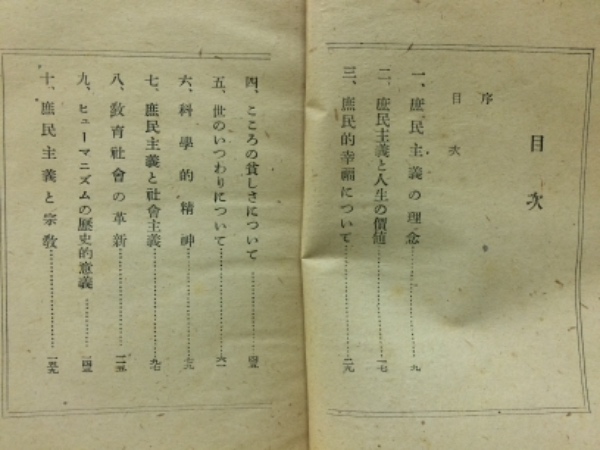 目次
序
目次
一、庶民主義の理念………九
二、庶民主義と人生の價値………一七
三、庶民的幸福について………二九
四、こころの貧しさについて………四五
五、世のいつわりについて………六一
六、科學的精神………七九
七、庶民主義と社會主義………九七
八、敎育社會の革新………一二五
九、ヒューマニズムの歷史的意義………一四五
十、庶民主義と宗敎………一五九